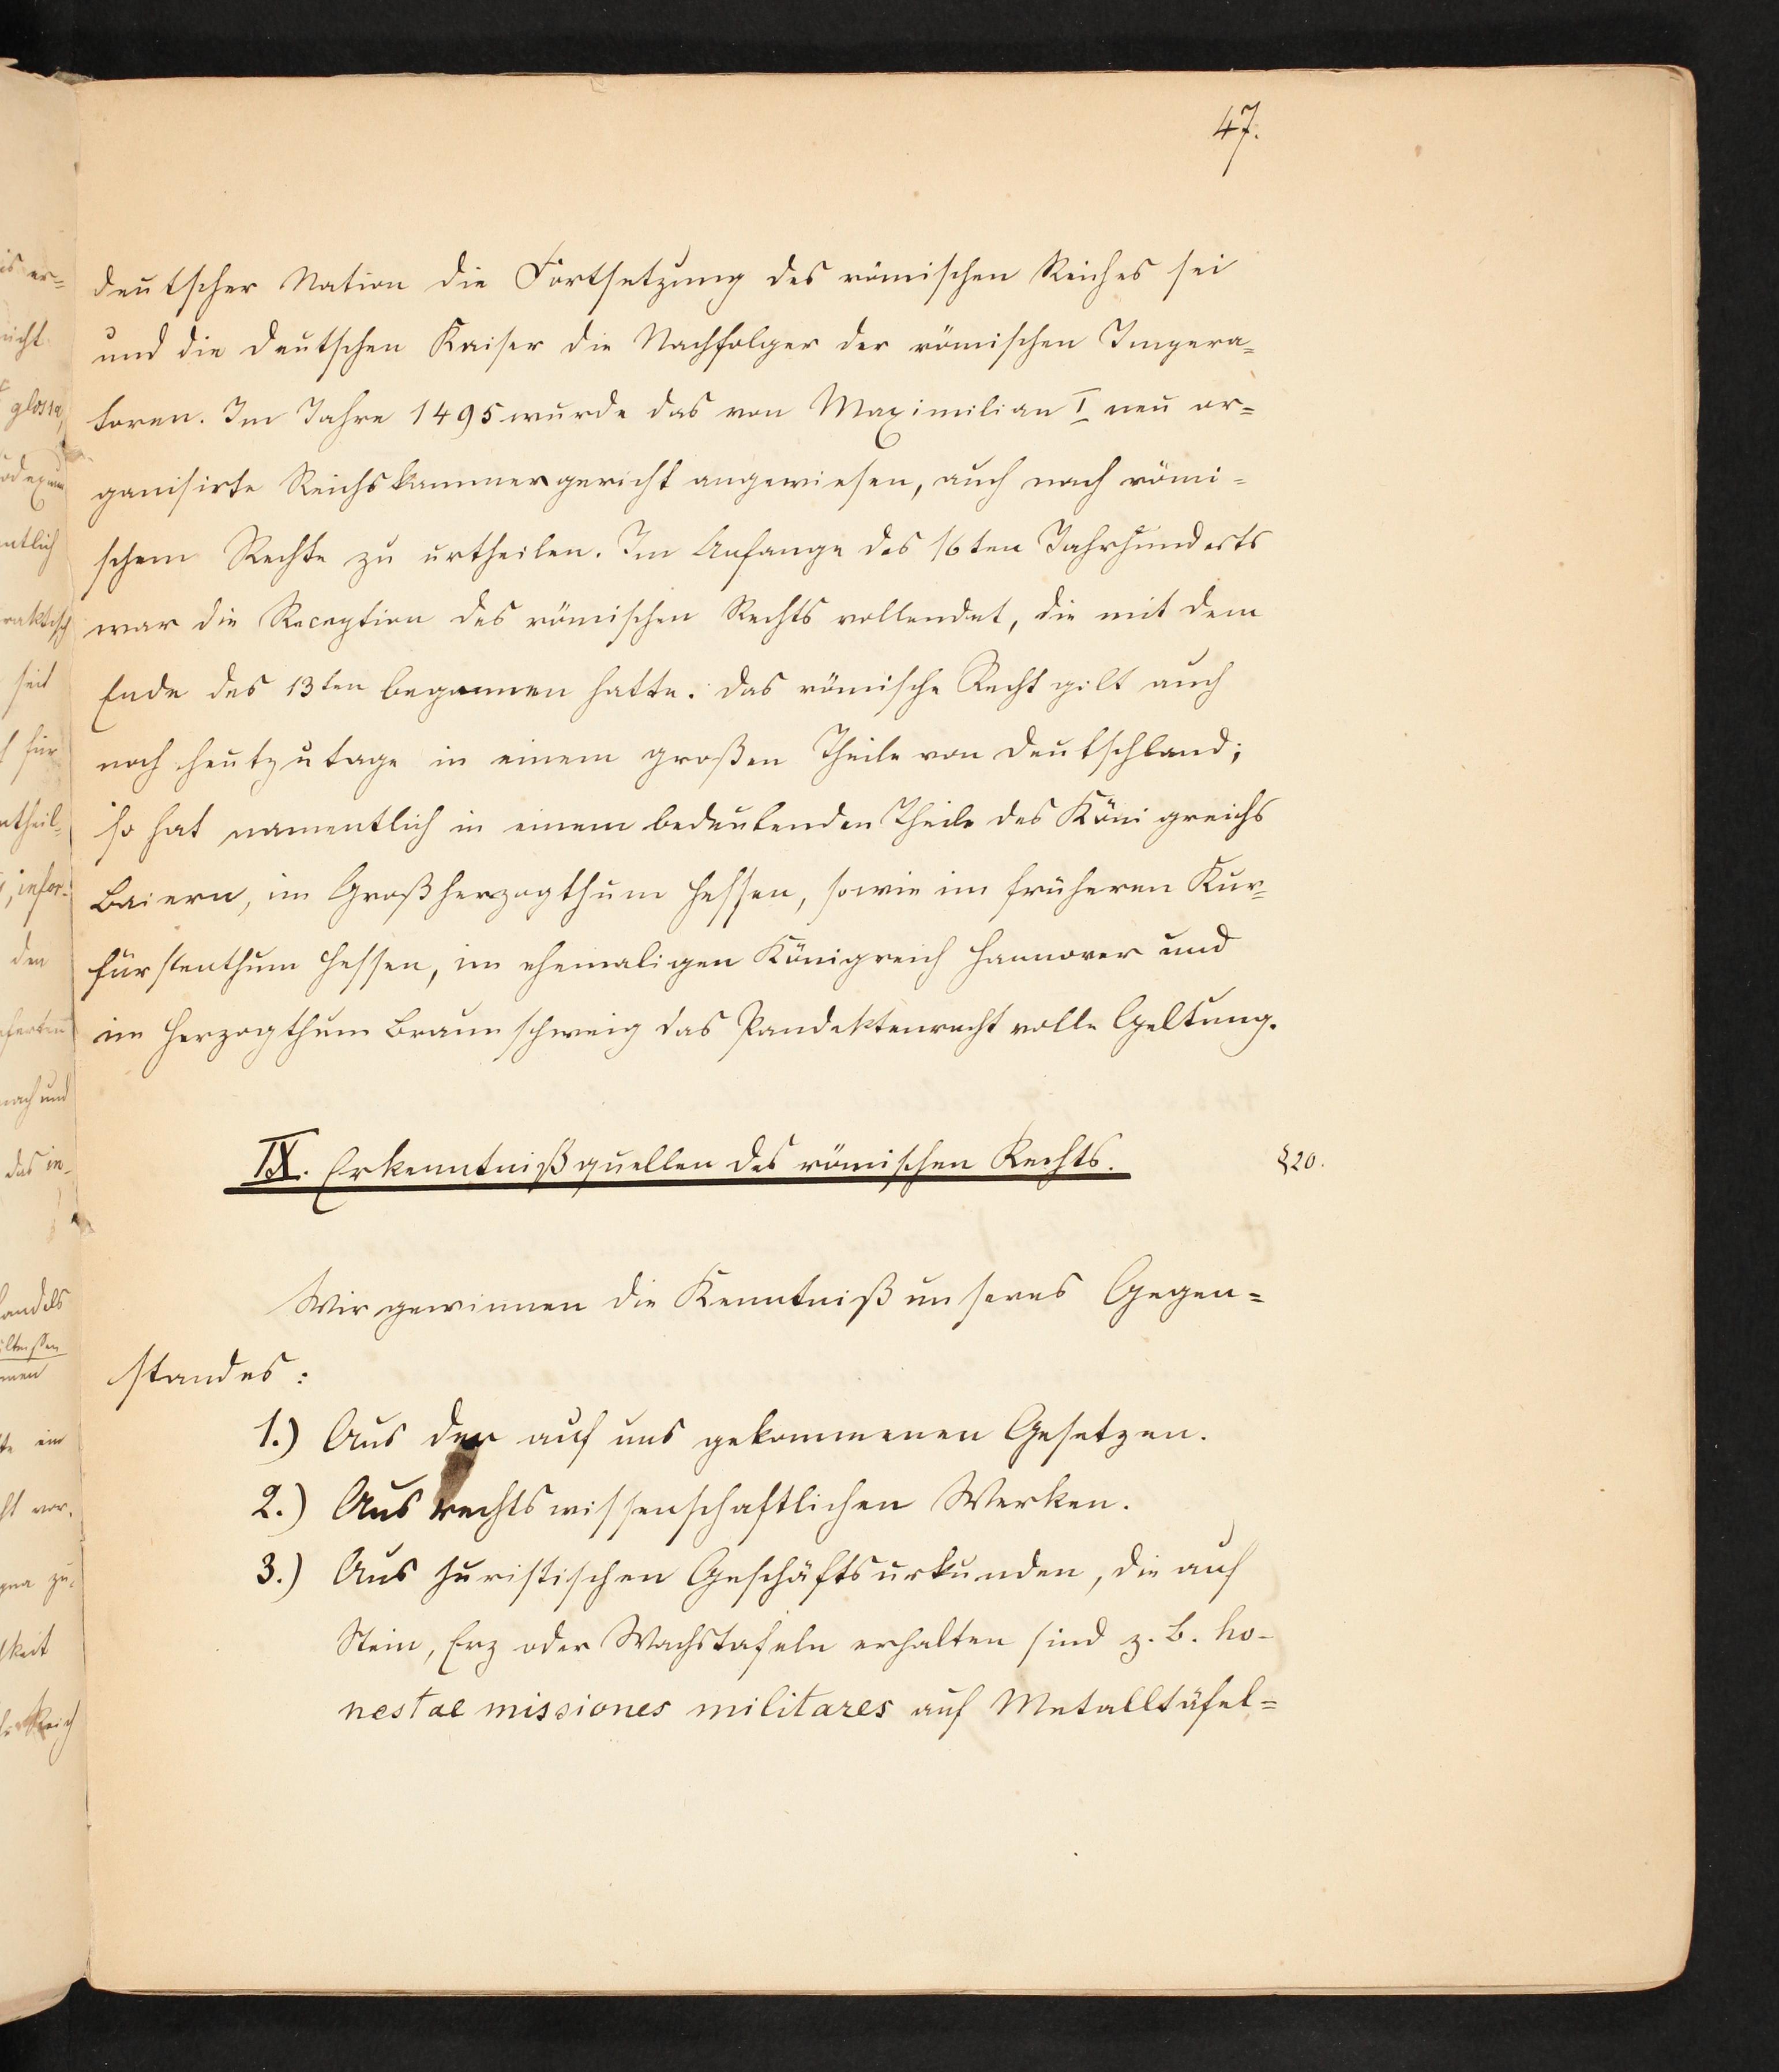 47.
deutscher Nation die Fortsetzung des römischen Reiches sei
und die deutschen Kaiser die Nachfolger der römischen Impera=
toren. Im Jahre 1495 wurde das von Maximilian I neu or=
ganisirte Reichskammergericht angewiesen, auch nach römi=
schem Rechte zu urtheilen. Im Anfange des 16ten Jahrhunderts
war die Reception des römischen Rechts vollendet, die mit dem
Ende des 13ten begonnen hatte. Das römische Recht gilt auch
noch heutzutage in einem großen Theile von Deutschland;
so hat namentlich in einem bedeutenden Theile des Königreichs
Baiern, im Großherzogthum Hessen, sowie im früheren Kur=
fürstenthum Hessen, im ehemaligen Königreich Hannover und
im Herzogthum Braunschweig das Pandektenrecht volle Geltung.
IX. Erkenntnißquellen des römischen Rechts. §20.
Wir gewinnen die Kenntniß unseres Gegen=
standes:
1.) Aus den auf uns gekommenen Gesetzen.
2.) Aus rechtswissenschaftlichen Werken.
3.) Aus juristischen Geschäftsurkunden, die auf
Stein, Erz oder Wachstafeln erhalten sind z. B. ho-
nestae missiones militares auf Metalltäfel=